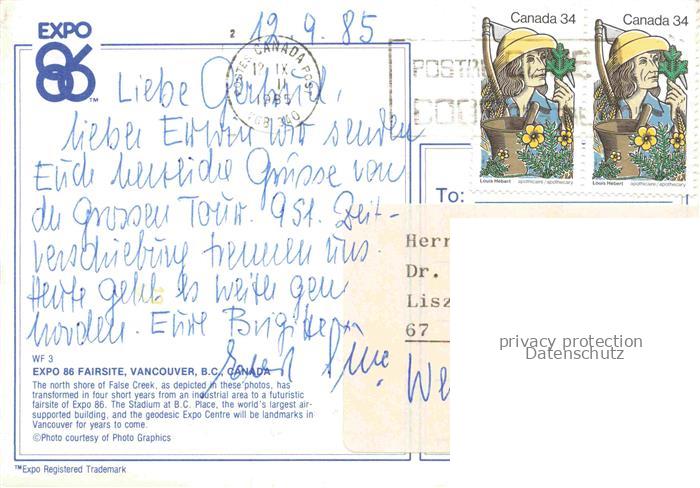 12.9.85
EXPO
86 ™
Liebe Gertrud,
lieber Erwin wir senden
Euch herzliche Grüsse von
der Grossen Tour. 9 St. Zeit-
verschiebung trennen uns.
Heute geht es weiter gen
Norden. Eure Brigitte
WF 3
EXPO 86 FAIRSITE, VANCOUVER, B.C., CANADA
The north shore of False Creek, as depicted in these photos, has
transformed in four short years from an industrial area to a futuristic
fairsite of Expo 86. The Stadium at B.C. Place, the world's largest air-
supported building, and the geodesic Expo Centre will be landmarks in
Vancouver for years to come.
©Photo courtesy of Photo Graphics
™Expo Registered Trademark
2
CANADA
IX
1985
Canada 34
Louis Hébert apothicaire/apothecary
Canada 34
Louis Hébert apothicaire/apothecary
To:
Herr
Dr.
Lisz
67
We
privacy protection
Datenschutz